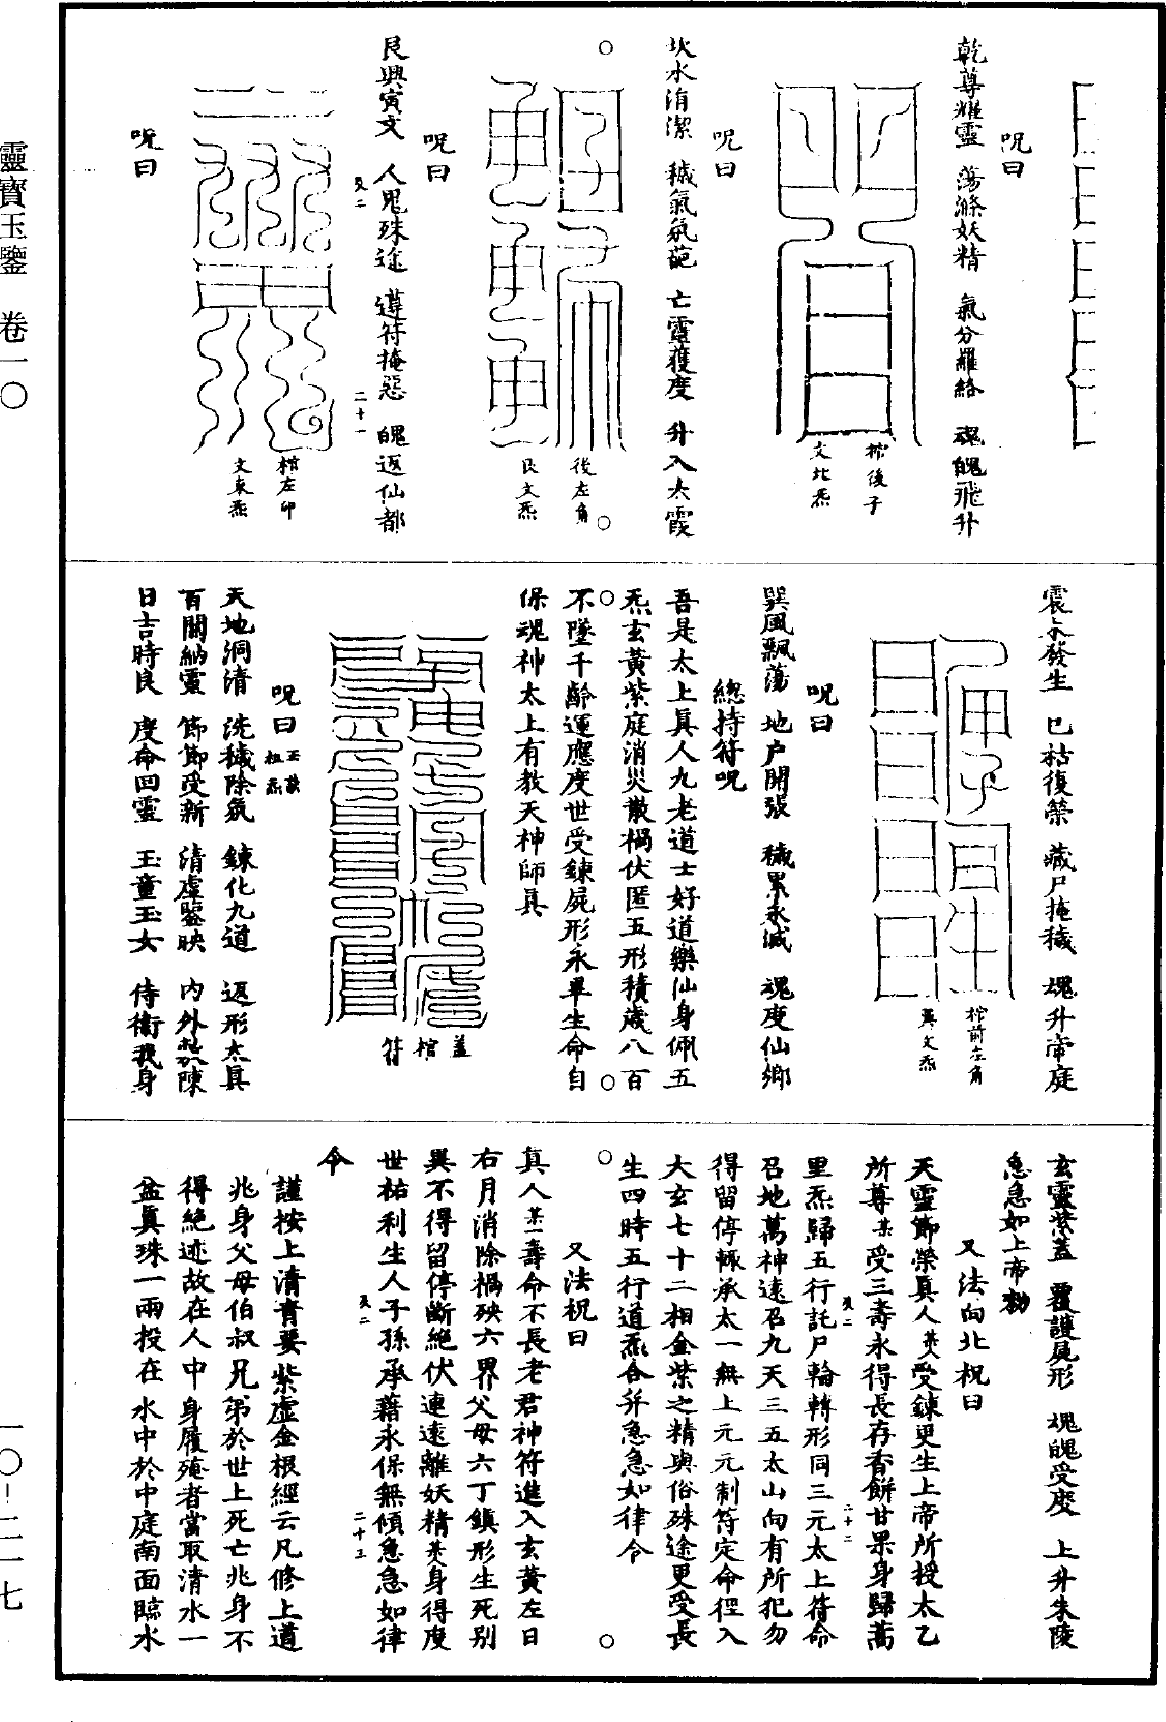 靈寶玉鑒 卷一〇
一〇—二一七
呪曰
乾尊耀靈 蕩滌妖精 氣分羅絡 魂魄飛升
棺後子
文北炁
呪曰
坎水淯潔 穢氣氛葩 亡靈獲度 升入太霞
後左角
艮文炁
呪曰
艮興寅文 人鬼殊途 遵符掩惡 魄返仙都
二十一
棺左卯
文東炁
呪曰
震木發生 已枯復榮 藏尸掩穢 魂升帝庭
棺前左角
巽文炁
呪曰
巽風飄蕩 地戶開張 穢累永滅 魂度仙鄉
總持符呪
吾是太上眞人九老道士好道樂仙身佩五
炁玄黃紫庭消災散禍伏匿五形積歲八百
不墜千齡運應度世受鍊屍形永畢生命自
保魂神太上有教天神師眞
蓋
棺
符
呪曰
天地洞清 洗穢除氛 鍊化九道 返形太眞
百關納靈 節節受新 清虛鑒映 內外敷陳
日吉時良 度命回靈 玉童玉女 侍衛我身
玄靈紫蓋 覆護屍形 魂魄受度 上升朱陵
急急如上帝勑
又法向北祝曰
天靈節榮眞人某人受鍊更生上帝所授太乙
所尊某受三壽永得長存香餅甘果身歸蒿
二十二
里炁歸五行託尸輪轉形同三元太上符命
召地萬神速召九天三五太山向有所犯勿
得留停輒承太一無上元元制符定命徑入
大玄七十二相金紫之精與俗殊途更受長
生四時五行道炁合并急急如律令
又法祝曰
眞人某一壽命不長老君神符進入玄黃左日
右月消除禍殃六界父母六丁鎮形生死別
異不得留停斷絕伏連遠離妖精某人身得度
世祐利生人子孫承藉永保無傾急急如律
二十三
令
謹按上清青要紫虛金根經云凡修上道
兆身父母伯叔兄弟於世上死亡兆身不
得絕迹故在人中身履殗者當取清水一
盆眞珠一兩投在水中於中庭南面臨水